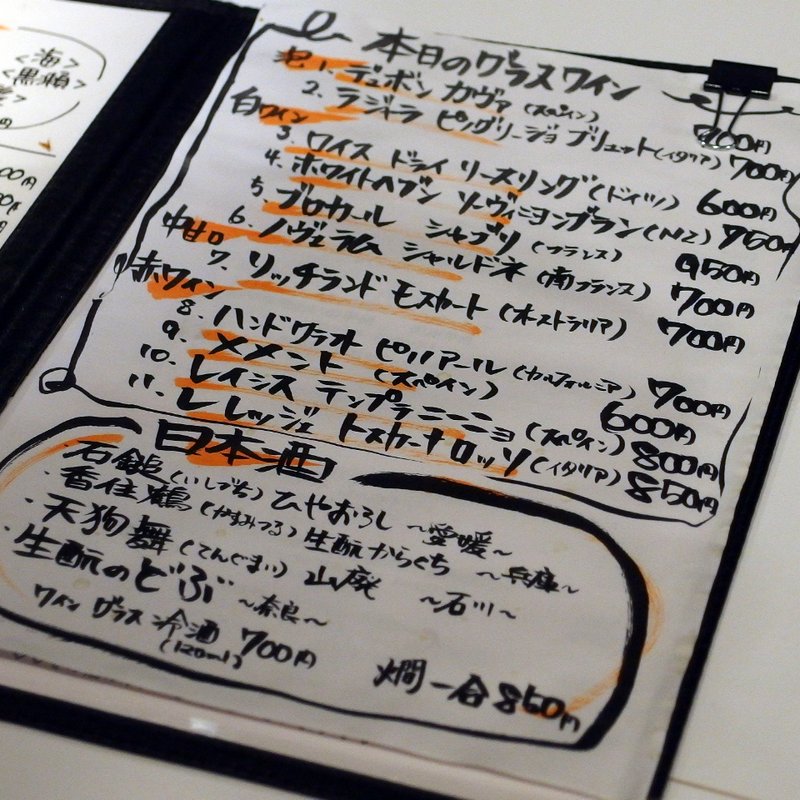 <海>
<黒瀬>
円
00円
円
本日のグラスワイン
泡 1. デュボン カヴァ (スペイン) 700円
2. ラジャーラ ピングリージョ ブリュット (イタリア) 700円
白ワイン
3. ワイス ドライ リースリング (ドイツ) 600円
4. ホワイトヘブン ソーヴィニヨンブラン (NZ) 750円
5. ブロカール シャブリ (フランス) 950円
6. ノヴェラム シャルドネ (南フランス) 700円
中甘口 7. リッチランド モスカート (オーストラリア) 700円
赤ワイン
8. ハンドクラフト ピノノアール (カルフォルニア) 700円
9. メメント (スペイン) 600円
10. レイシス テンプラニーニョ (スペイン) 800円
11. レ レッジェ トスカーナロッソ (イタリア) 850円
日本酒
・石鎚 (いしづち) ひやおろし ~愛媛~
・香住鶴 (かすみつる) 生酛からくち ~兵庫~
・天狗舞 (てんぐまい) 山廃 ~石川~
・生酛のどぶ ~奈良~
ワイングラス冷酒 700円
(120ml)
燗一合 850円